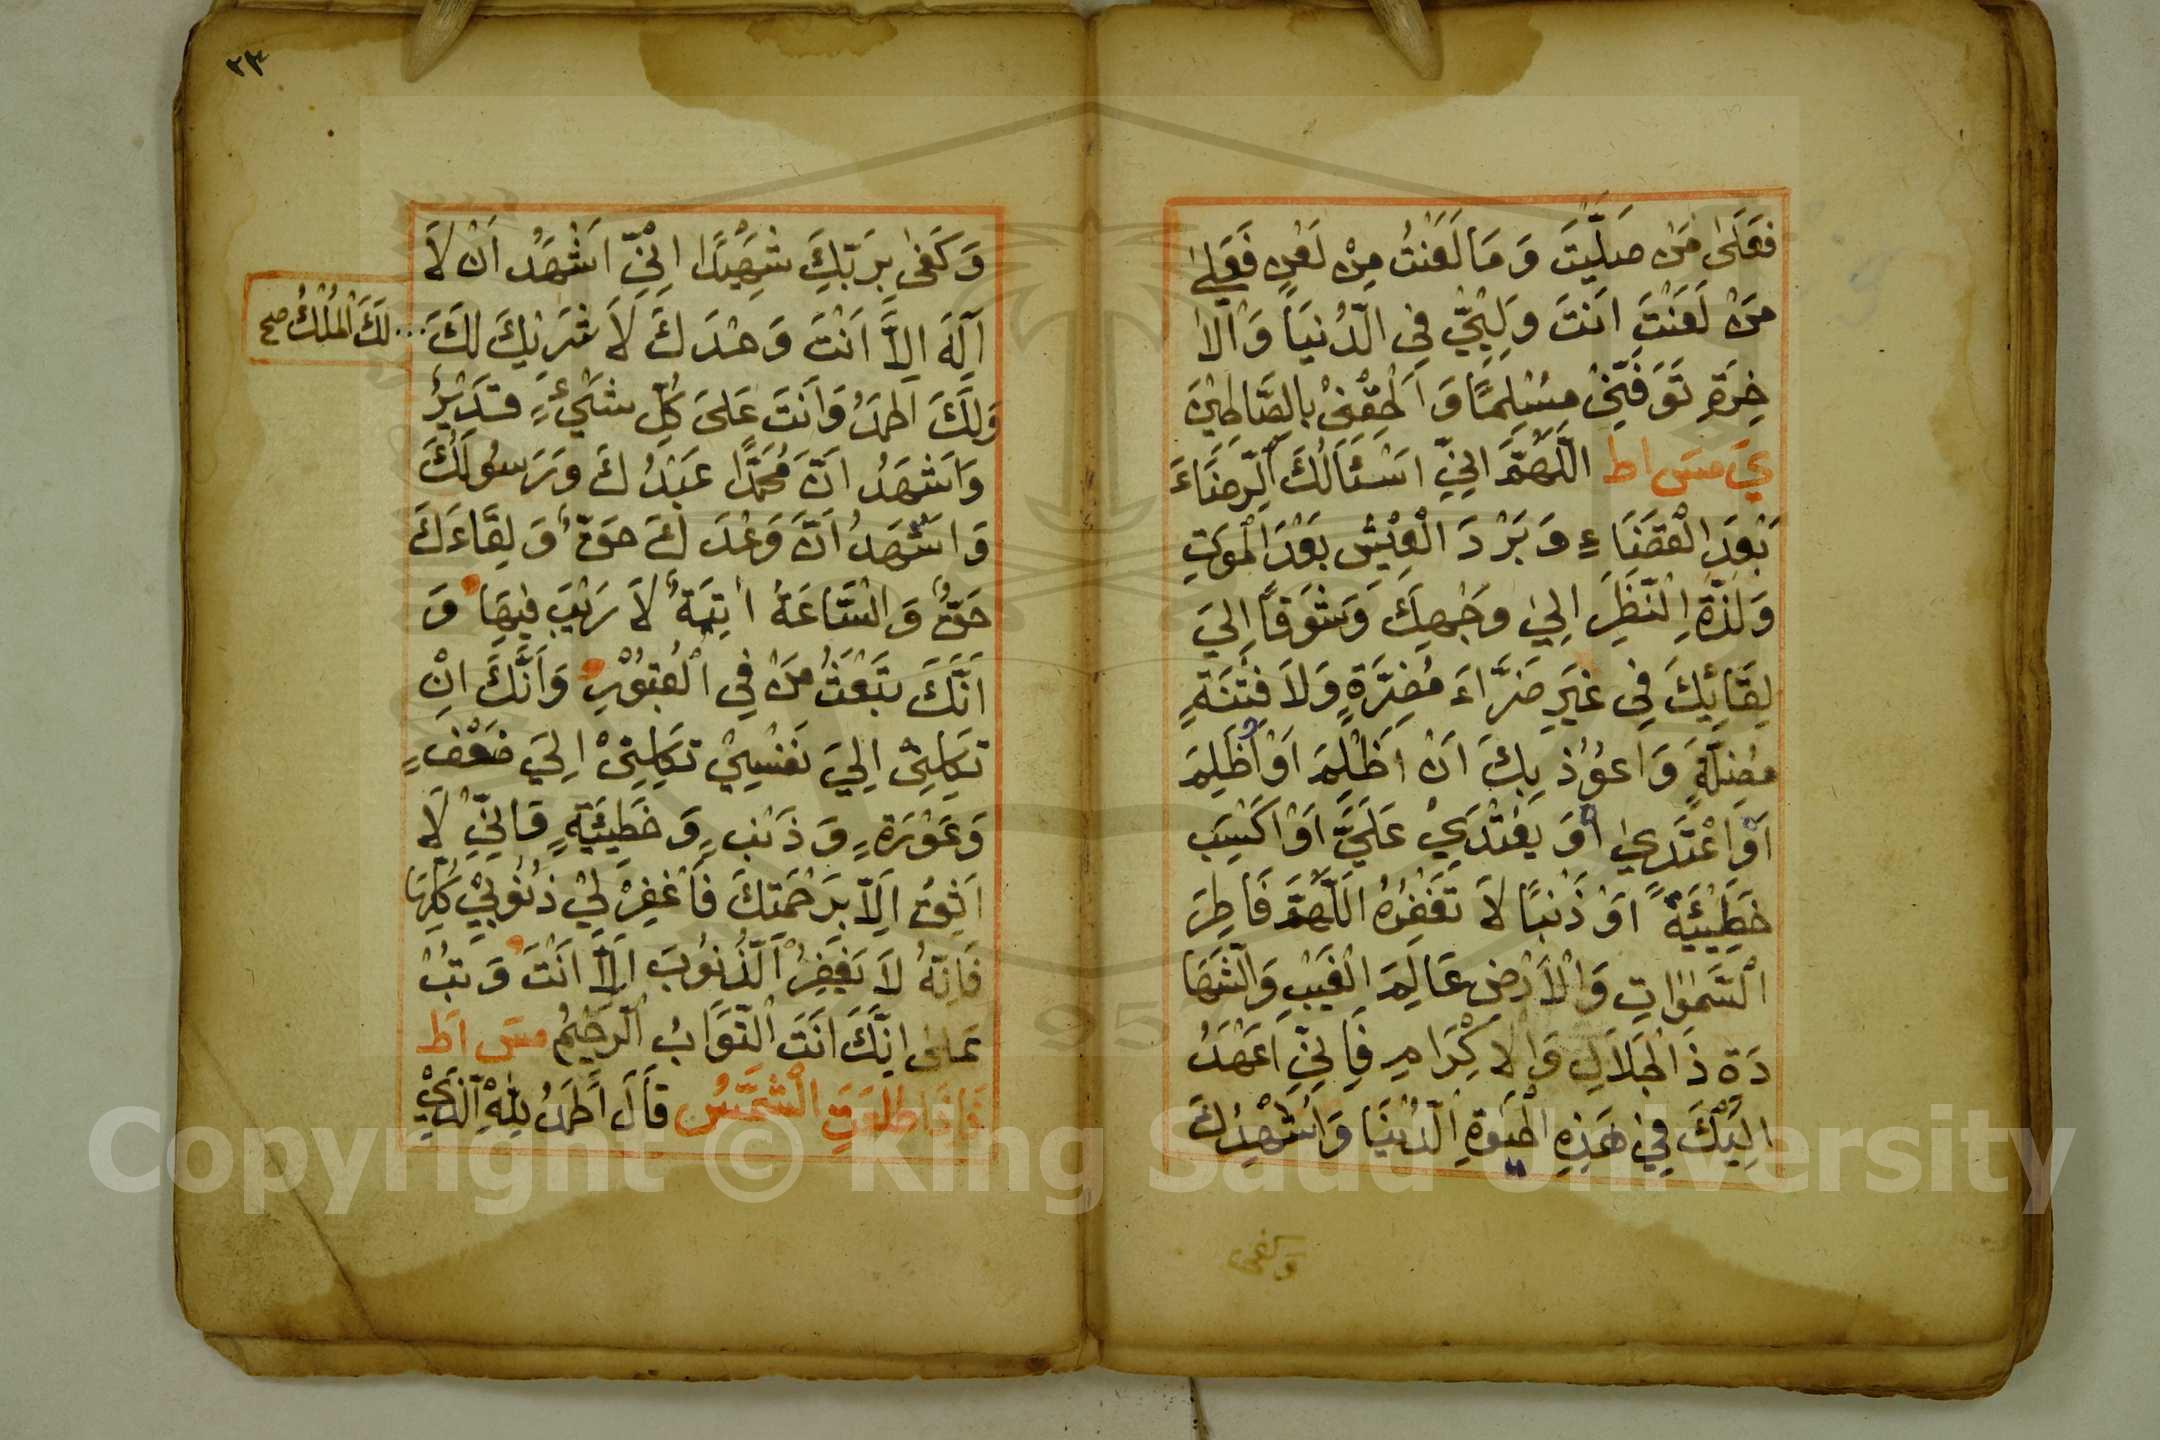 فَعَلَىٰ مَنْ صَلَّيْتَ وَمَا لَعَنْتُ مِنْ لَعْنٍ فَعَلَىٰ
مَنْ لَعَنْتَ اَنْتَ وَلِيِّيْ فِي الدُّنْيَا وَالْاٰ
خِرَةِ تَوَفَّنِيْ مُسْلِمًا وَاَلْحِقْنِيْ بِالصَّالِحِيْنَ
ي مس اط اَللّٰهُمَّ اِنِّيْ اَسْئَالُكَ الرِّضَاءَ
بَعْدَ الْقَضَاءِ وَبَرْدَ الْعَيْشِ بَعْدَ الْمَوْتِ
وَلَذَّةَ النَّظَرِ اِلَىٰ وَجْهِكَ وَشَوْقًا اِلَىٰ
لِقَائِكَ فِي غَيْرِ ضَرَّاءَ مُضِرَّةٍ وَلَا فِتْنَةٍ
مُضِلَّةٍ وَاَعُوْذُ بِكَ اَنْ اَظْلِمَ اَوْ اُظْلَمَ
اَوْ اَعْتَدِيَ اَوْ يُعْتَدَىٰ عَلَيَّ اَوْ اَكْسِبَ
خَطِيْئَةً اَوْ ذَنْبًا لَا تَغْفِرُهُ اَللّٰهُمَّ فَاطِرَ
السَّمٰوَاتِ وَالْاَرْضِ عَالِمَ الْغَيْبِ وَالشَّهَا
دَةِ ذَا الْجَلَالِ وَالْاِكْرَامِ فَاِنِّيْ اَعْهَدُ
اِلَيْكَ فِيْ هٰذِهِ الْحَيٰوةِ الدُّنْيَا وَاُشْهِدُكَ
وكفى
٢٣
وَكَفٰى بِرَبِّكَ شَهِيْدًا اِنِّيْ اَشْهَدُ اَنْ لَا
اِلٰهَ اِلَّا اَنْتَ وَحْدَكَ لَا شَرِيْكَ لَكَ
لَكَ الْمُلْكُ صح
وَلَكَ الْحَمْدُ وَاَنْتَ عَلَىٰ كُلِّ شَيْءٍ قَدِيْرٌ
وَاَشْهَدُ اَنَّ مُحَمَّدًا عَبْدُكَ وَرَسُولُكَ
وَاَشْهَدُ اَنَّ وَعْدَكَ حَقٌّ وَلِقَاءَكَ
حَقٌّ وَالسَّاعَةُ اٰتِيَةٌ لَا رَيْبَ فِيهَا وَ
اَنَّكَ تَبْعَثُ مَنْ فِي الْقُبُوْرِ وَاَنَّكَ اِنْ
تَكِلْنِيْ اِلَىٰ نَفْسِيْ تَكِلْنِيْ اِلَىٰ ضَعْفٍ
وَعَوْرَةٍ وَذَنْبٍ وَخَطِيْئَةٍ فَاِنِّيْ لَا
اَثِقُ اِلَّا بِرَحْمَتِكَ فَاغْفِرْ لِيْ ذُنُوْبِيْ كُلَّهَا
فَاِنَّهُ لَا يَغْفِرُ الذُّنُوبَ اِلَّا اَنْتَ وَتُبْ
عَلَىٰ اِنَّكَ اَنْتَ التَّوَّابُ الرَّحِيْمُ مس اط
فَاِذَا طَلَعَتِ الشَّمْسُ قَالَ اَلْحَمْدُ لِلّٰهِ الَّذِيْ
Copyright © King Saud University